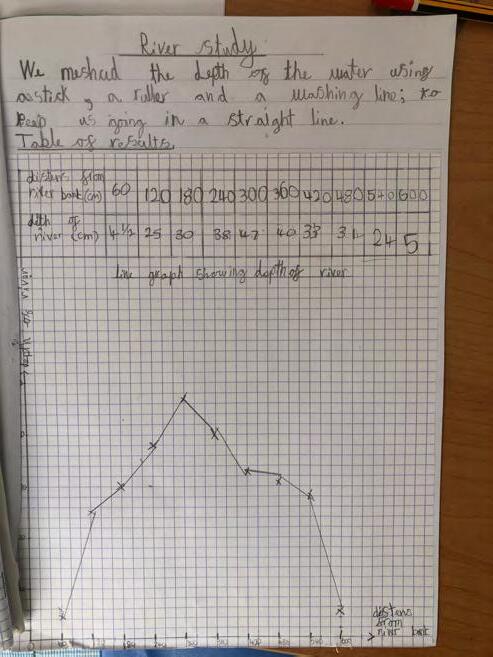 River study
We meshud the depth of the water using
a stick, a ruller and a washing line; to
keep us going in a straight line.
Table of results.
distans from
river bank (cm) 60 120 180 240 300 360 420 480 540 600
deth of
river (cm) 4 1/2 25 30 38 47 40 33 31 24 5
line graph showing depth of river
distans
from
river bank